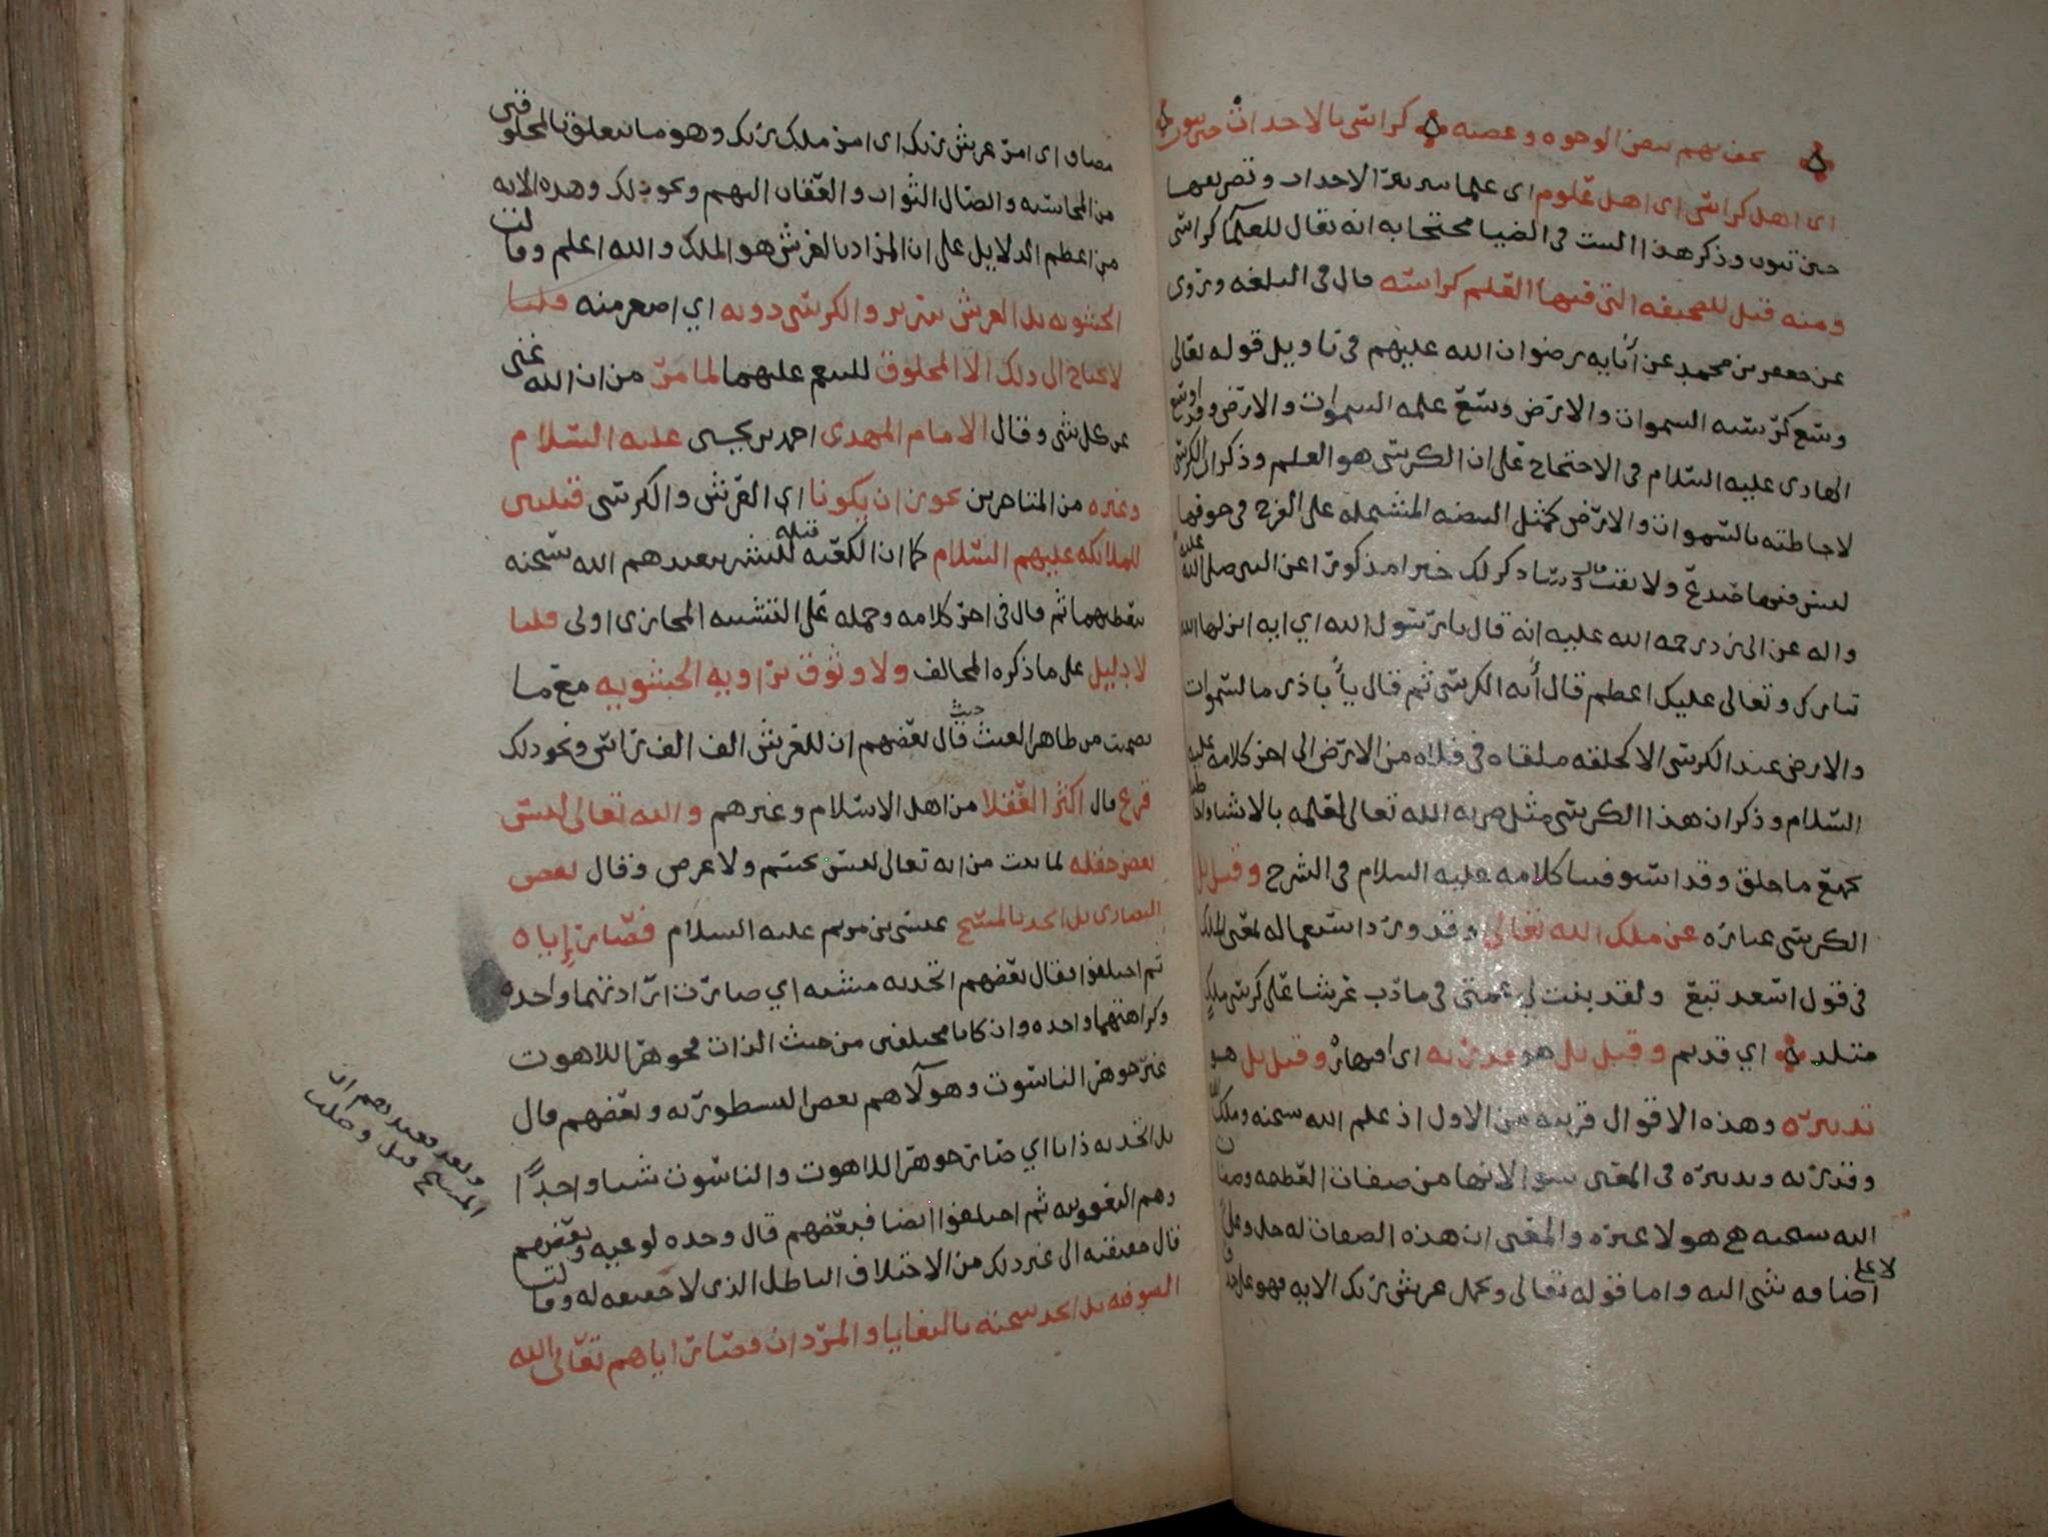 يحف بهم بيض الوجوه وعصبه كراسي بالاحداث حين تنوب
اي اهل كراسي اي اهل علوم اي علما سريعة الاحداث وتصريفها
حين تنوب وذكر هذا البيت في الضيا محتجا به انه يقال للعلما كراسي
ومنه قيل للصحيفه التي فيها العلم كراسه قال في البلغه وتروى
عن جعفر بن محمد عن آبايه رضوان الله عليهم في تاويل قوله تعالى
وسع كرسيه السموات والارض وسع علمه السموات والارض وقد اوسع
الهادي عليه السلام في الاحتجاج على ان الكرسي هو العلم وذكر ان الكرسي
لاحاطته بالسموات والارض كمثل البيضه المشتمله على الفرخ في جوفها
ليس فيها صدع ولا فتق قال وساذكر لك خبرا مذكورا عن النبي صلى الله عليه
واله عن ابي ذر رحمه الله عليه انه قال يا رسول الله اي ايه انزلها الله
تبارك وتعالى عليك اعظم قال آية الكرسي ثم قال يا أبا ذر ما السموات
والارض عند الكرسي الا كحلقه ملقاه في فلاه من الارض الى اخر كلامه عليه
السلام وذكر ان هذا الكرسي مثل ضربه الله تعالى لعلمه بالاشيا واحاطته
بجميع ما خلق وقد استوفينا كلامه عليه السلام في الشرح وقيل بل
الكرسي عباره عن ملك الله تعالى وقد ورد استعماله لمعنى الملك
في قول اسعد تبع ولقد بنت لي عمتي في مأرب عرشا على كرسي ملك
متلد اي قديم وقيل بل هو قدرته اي اقتهاره وقيل بل هو
تدبيره وهذه الاقوال قريبه من الاول اذ علم الله سبحنه وملكه
وقدرته وتدبيره في المعنى سوا لانها من صفات العظمه وصفات
الله سبحنه هي هو لا غيره والمعنى ان هذه الصفات له جل وعلا
لا على اضافه شي اليه واما قوله تعالى ويحمل عرش ربك الايه فهو على حذف
مضاف اي امر عرش ربك اي امر ملك ربك وهو ما يتعلق بالمخلوقين
من المحاسبه وايصال الثواب والعقاب اليهم ونحو ذلك وهذه الايه
من اعظم الدلايل على ان المراد بالعرش هو الملك والله اعلم وقالت
الحشويه بل العرش سرير والكرسي دونه اي اصغر منه قلنا
لا يحتاج الى ذلك الا المخلوق لما مر من ان الله غني
عن كل شي وقال الامام المهدي احمد بن يحيى عليه السلام
وغيره من المتاخرين يجوز ان يكونا اي العرش والكرسي قبلتين
للملائكه عليهم السلام كما ان الكعبه قبله للبشر تعبدهم الله سبحنه
بتعظيمهما ثم قال في اخر كلامه وحمله على التشبيه المجازي اولى قلنا
لا دليل على ما ذكره المخالف ولا وثوق برواية الحشويه مع ما
تضمنت من ظاهر العبث حيث قال بعضهم ان للعرش الف الف راس ونحو ذلك
فرع قال اكثر العقلا من اهل الاسلام وغيرهم والله تعالى ليس
بعض خلقه لما ثبت من انه تعالى ليس بجسم ولا عرض وقال بعض
النصارى بل اتحد بالمسيح عيسى بن مريم عليه السلام فصار إياه
ثم اختلفوا فقال بعضهم اتحد به مشيه اي صارت ارادتهما واحده
وكراهتهما واحده وان كانا مختلفين من حيث الذات فجوهر اللاهوت
غير جوهر الناسوت وهولاهم بعض النسطوريه وبعضهم قال
بل اتحد به ذاتا اي صار جوهر اللاهوت والناسوت شيا واحدًا
وهم اليعقوبيه ثم اختلفوا ايضا فبعضهم قال وحده نوعيه وبعضهم
قال حقيقيه الى غير ذلك من الاختلاف الباطل الذي لا حقيقه له وقالت
الصوفيه بل اتحد سبحنه بالبغايا والمردان فصار اياهم تعالى الله
وبعد فعندهم ان
المسيح قتل وصلب